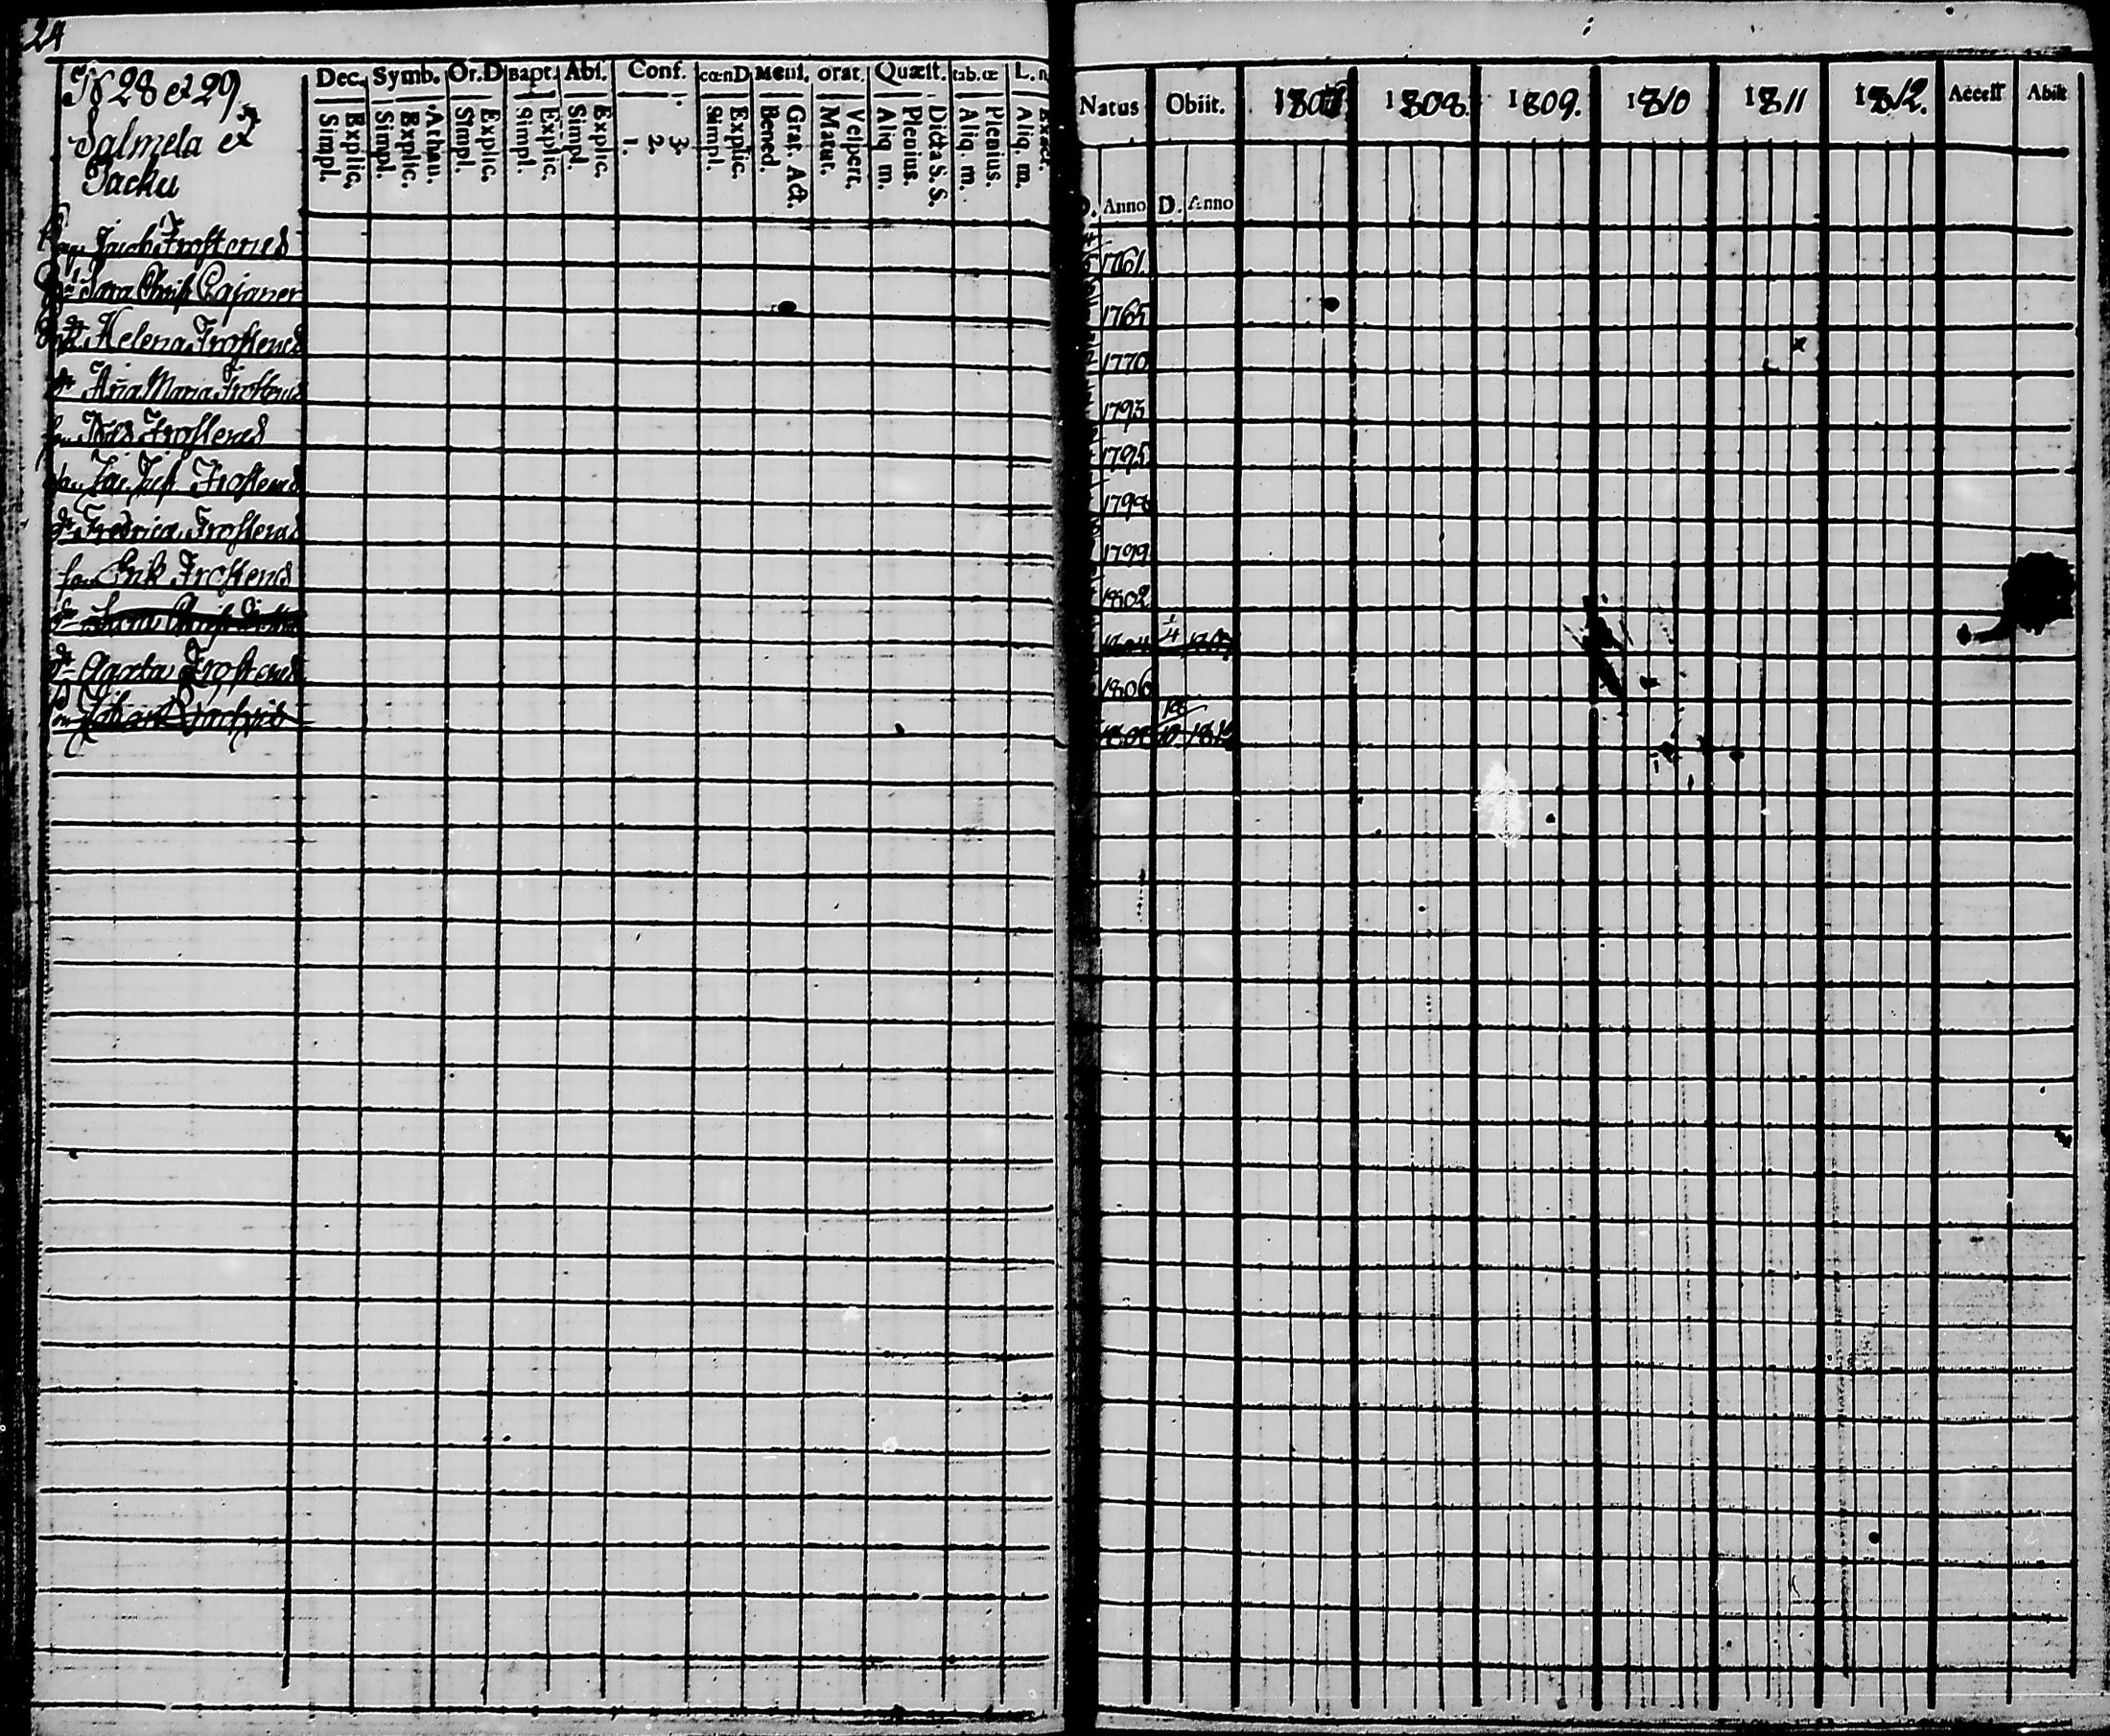 24
N 28 et 29
Salmela et
Packu
Dec. Symb. Or.D Bapt. Abs. Conf. cœnD Mens. orat. Quæst. tab.œ L.
Simpl. Explic. Simpl. Explic. Athan. Simpl. Explic. Simpl. Explic. Simpl. Explic. 1. 2. 3. Simpl. Explic. Bened. Grat. Act. Matut. Vespert. Aliq. m. Plenius. Dicta S. S. Aliq. m. Plenius. Aliq. m. Exact.
Natus Obiit. 1807. 1808. 1809. 1810 1811 1812. Access Abiit
D. Anno D. Anno
Jacob Frosterus 1761
Sara Christ Cajaner 1765
Helena Frosterus 1770
dr Aña Maria Frosterus 1793
son Nils Frosterus 1795
son Frosterus 1798
dr Fredrica Frosterus 1799
son Erik Frosterus 1802
dr
dr Agata Frosterus 1806
son Johan 1808